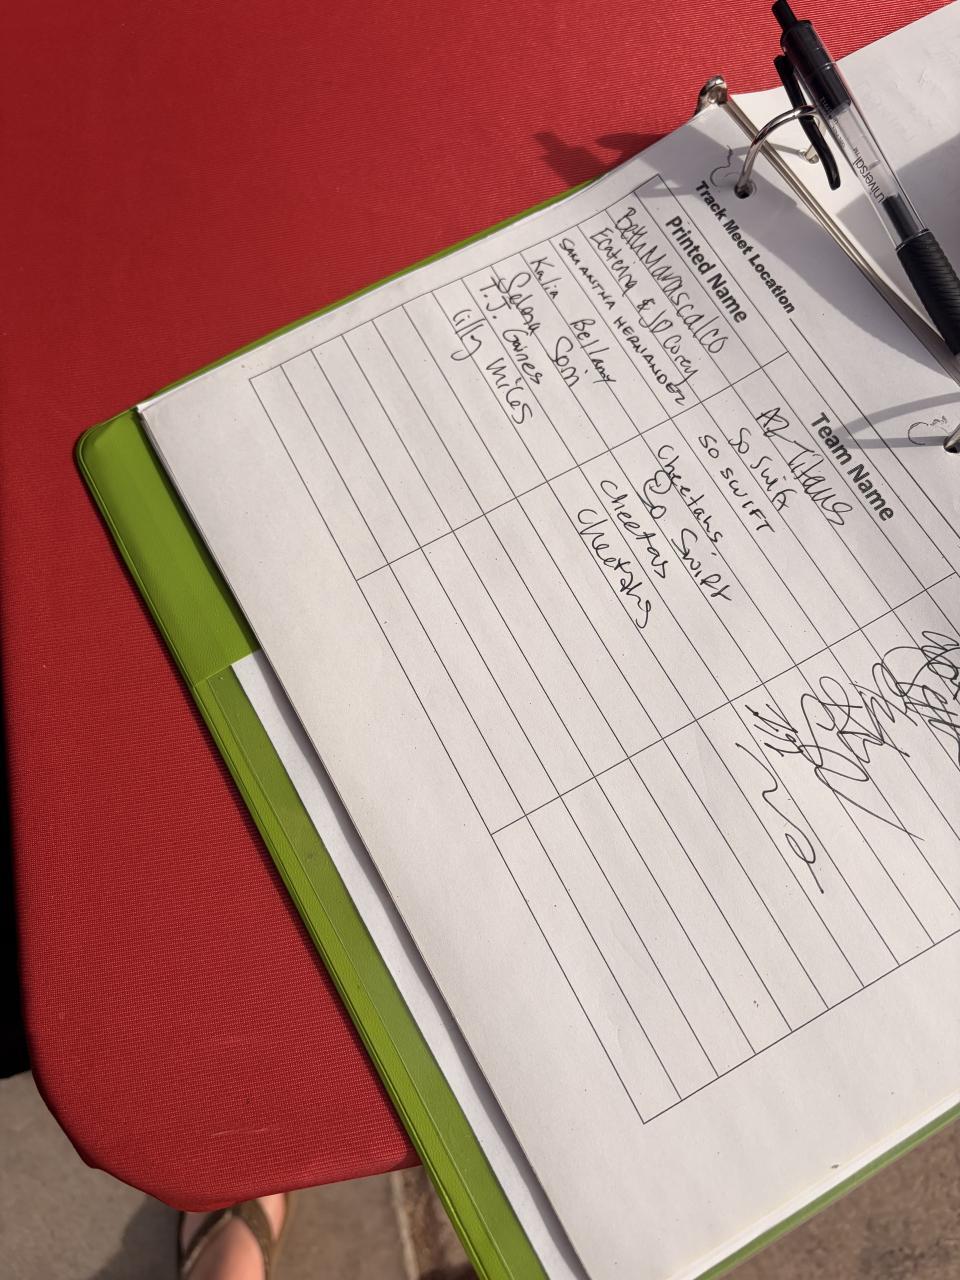 Track Meet Location
Printed Name Team Name
Beth Mariscalco AZ Titans
Ecaterina & JD Corey So Swift
SAMANTHA HERNANDEZ SO SWIFT
Kalia Bellamy Cheetahs.
Selena Soin So Swift
T.J. Gaines Cheetas
Lilly miles Cheetahs
universal